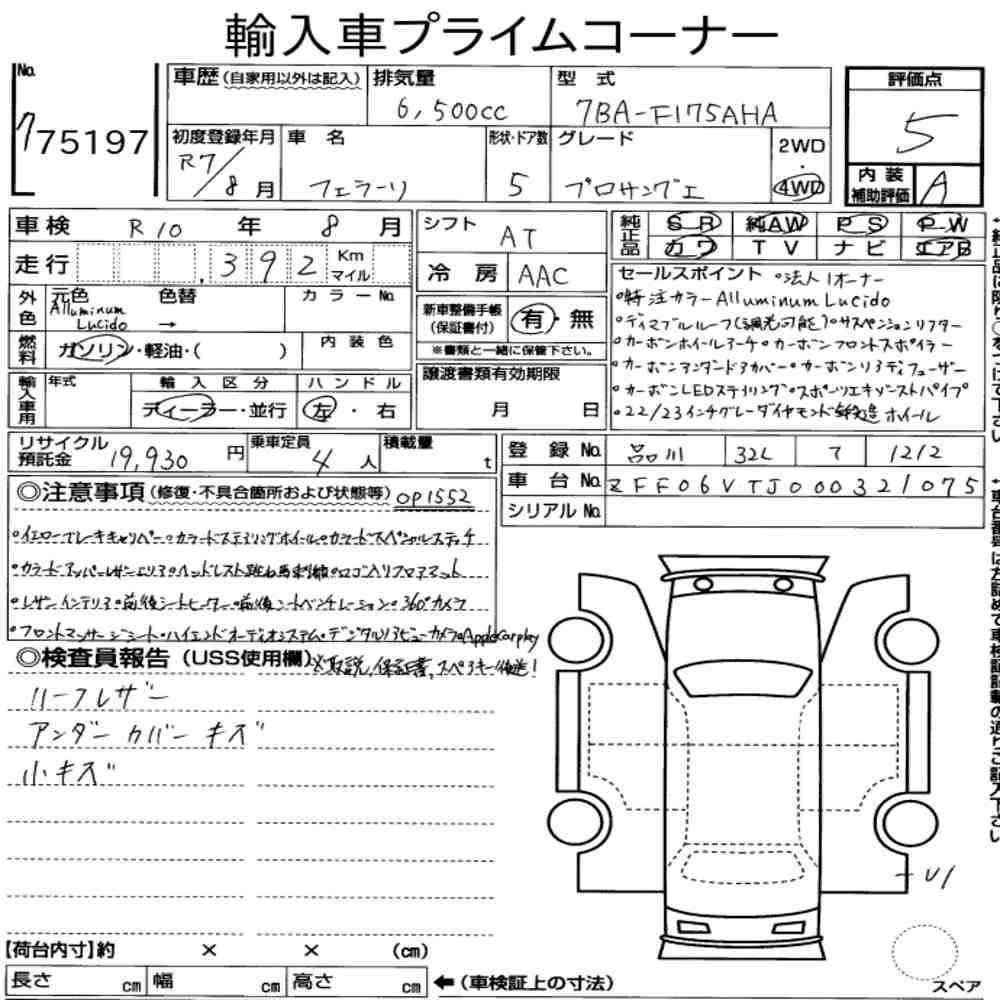 輸入車プライムコーナー
No.
775197
車歴(自家用以外は記入)
排気量
6,500cc
型 式
7BA-F175AHA
評価点
5
初度登録年月
R7/8月
車 名
フェラーリ
形状・ドア数
5
グレード
プロサングエ
2WD
・
4WD
内装
補助評価
A
車検 R10 年 8 月
走行 .392 Km
マイル
シフト AT
冷房 AAC
純正品
SR 純AW PS PW
カワ TV ナビ エアB
外色
元色 色替 カラーNo.
Alluminum
Lucido →
燃料
ガソリン・軽油・( )
内装色
新車整備手帳
(保証書付)
有・無
※書類と一緒に保管下さい。
輸入車用
年式
輸入区分
ディーラー・並行
ハンドル
左・右
譲渡書類有効期限
月 日
セールスポイント ・法人1オーナー
・特注カラーAlluminum Lucido
・ディマブルルーフ(調光可能)・サスペンションリフター
・カーボンホイールアーチ・カーボンフロントスポイラー
・カーボンアンダードアカバー・カーボンリアディフューザー
・カーボンLEDステイリング・スポーツエキゾーストパイプ
・22/23インチグレーダイヤモンド鍛造ホイール
リサイクル
預託金
19,930 円
乗車定員
4 人
積載量
t
登録No. 品川 32L 7 1212
車台No. ZFF06VTJ000321075
シリアルNo.
◎注意事項(修復・不具合箇所および状態等) OP1552
・イエローブレーキキャリパー・カラードステアリングホイール・カラードスペシャルステッチ
・カラードアッパーレザーエリア・ヘッドレスト跳ね馬刺繍・ロゴ入りフロアマット
・レザーインテリア・前後シートヒーター・前後シートベンチレーション・360°カメラ
・フロントマッサージシート・ハイエンドオーディオシステム・デジタルリアビューカメラ・Apple Carplay
◎検査員報告(USS使用欄) ※取説,保証書,スペアキー後送!
ハーフレザー
アンダーカバーキズ
小キズ
U1
スペア
【荷台内寸】約 × × (cm)
長さ cm 幅 cm 高さ cm ←(車検証上の寸法)
↑純正品に限り○をつけて下さい
↑車台番号は左詰めで車検証記載の通りご記入下さい